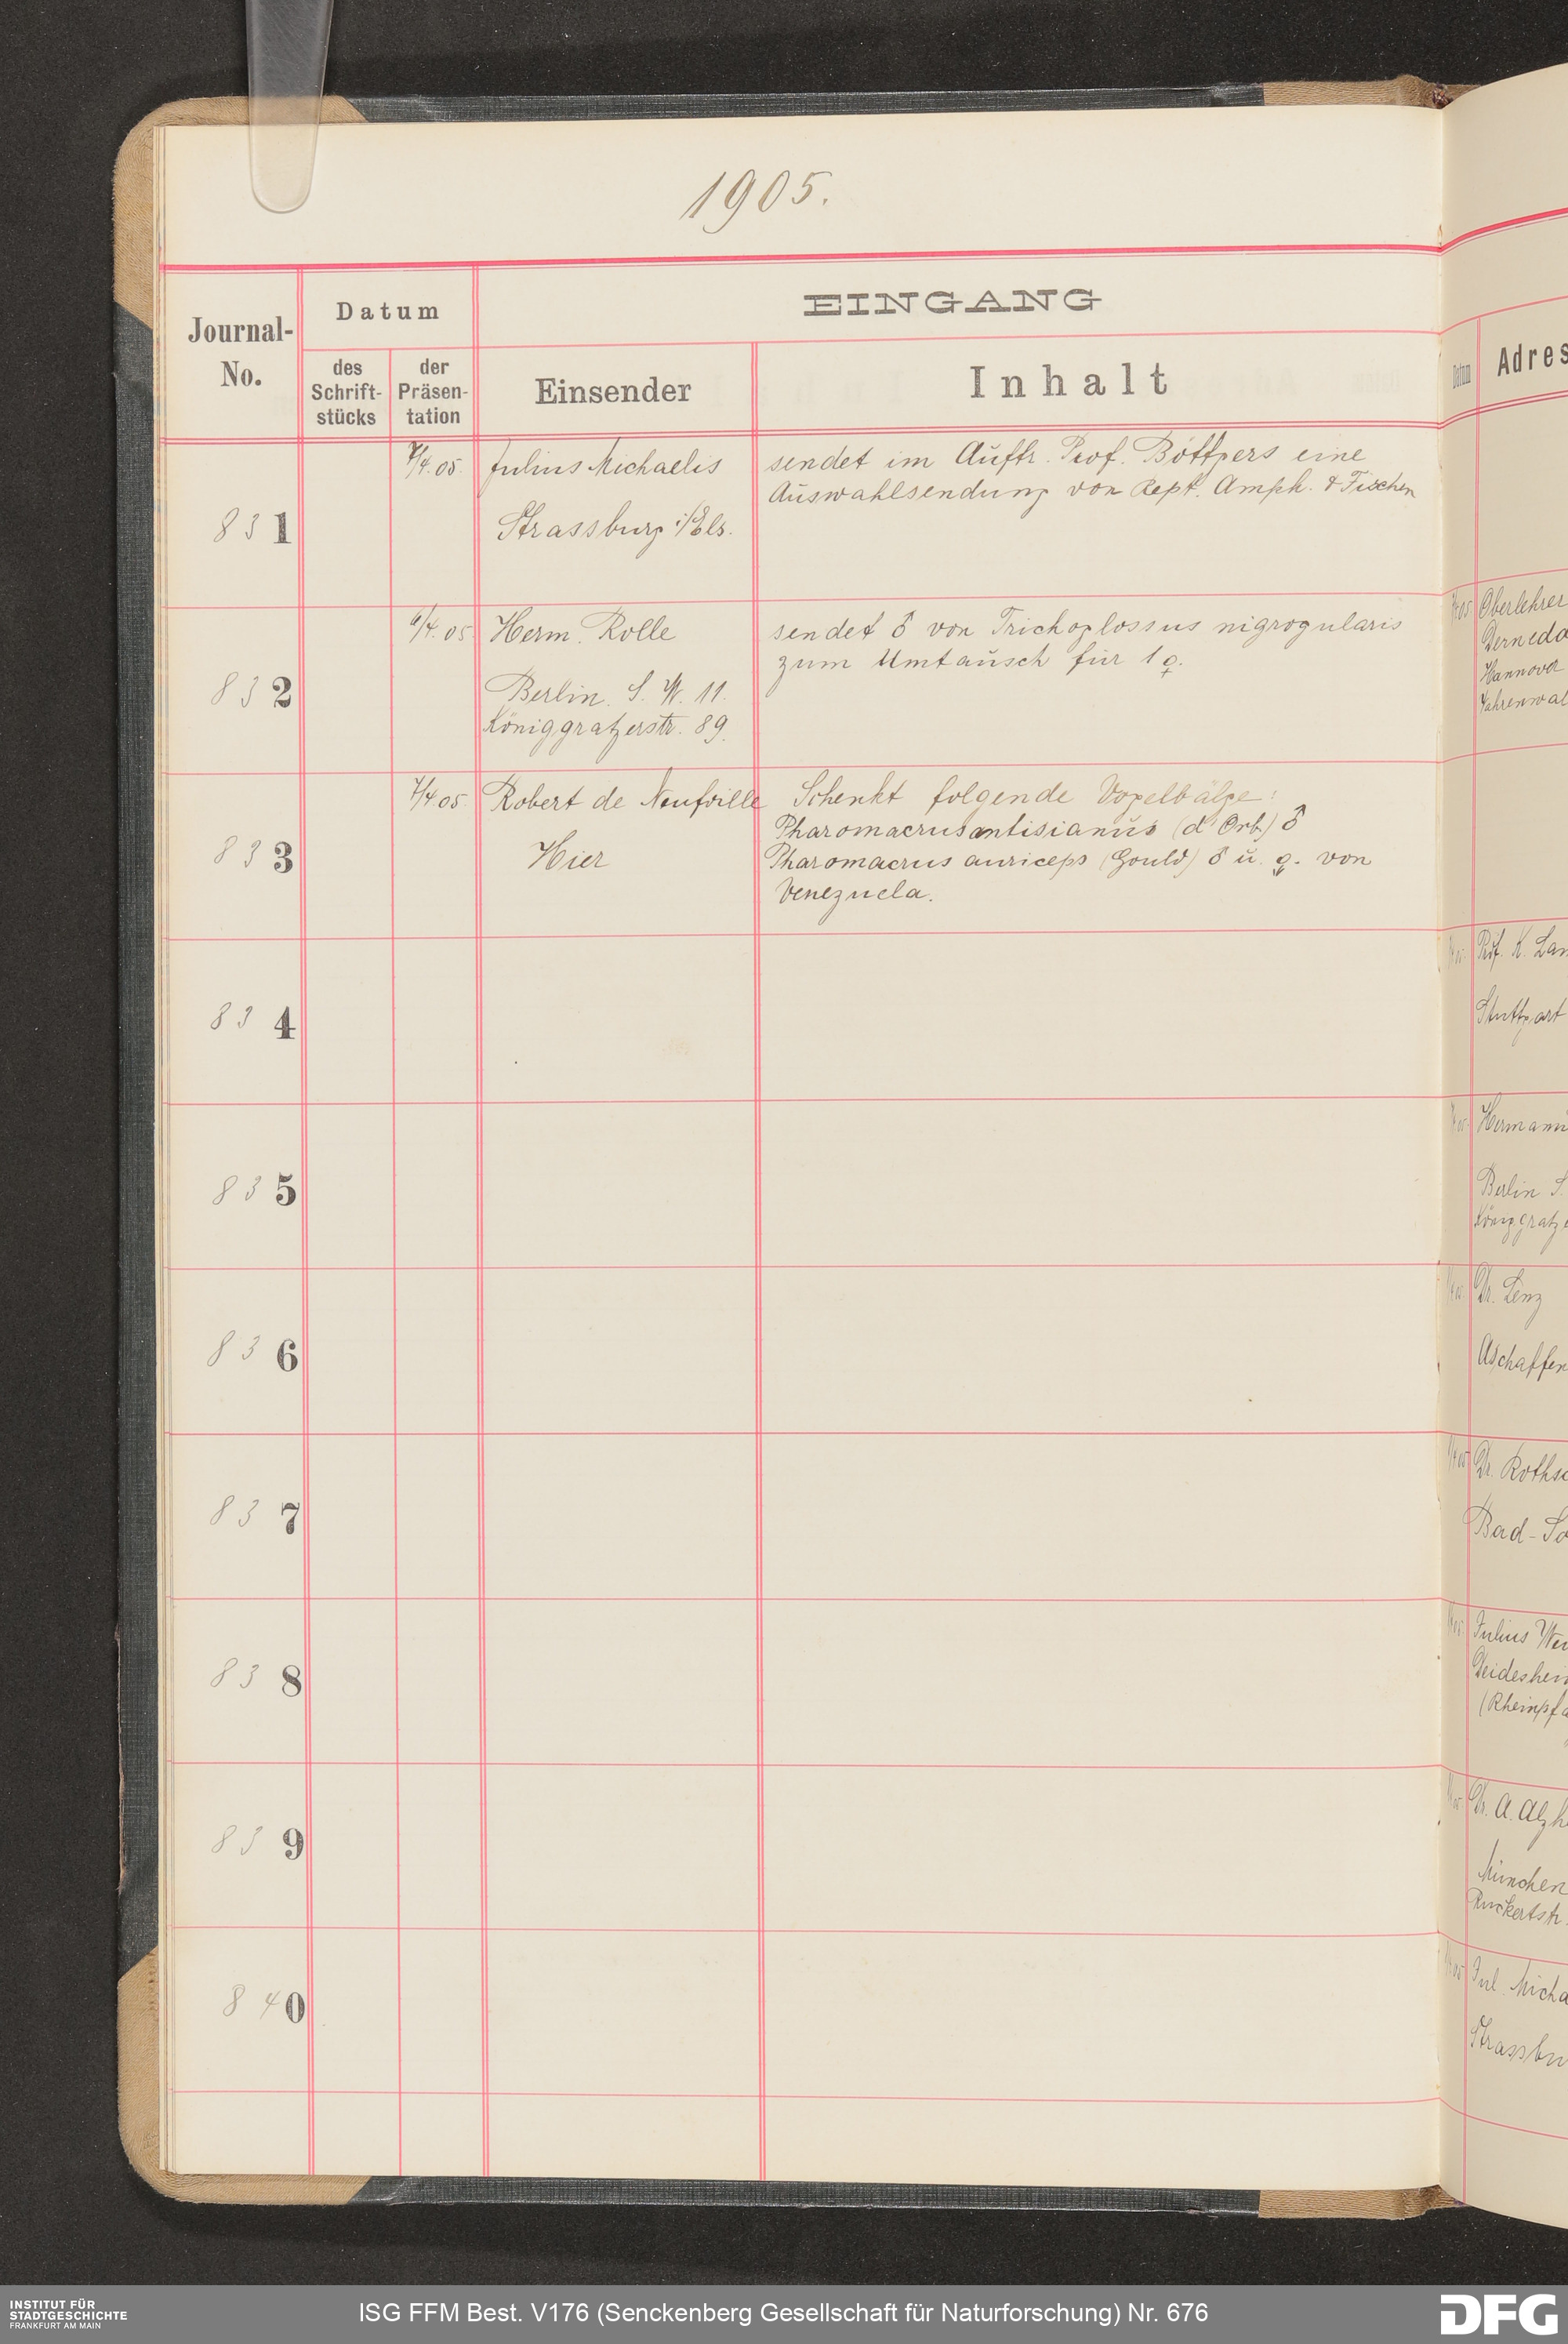 1905.
Journal-
No.
Datum
des
Schrift-
stücks
der
Präsen-
tation
EINGANG
Einsender
Inhalt
Datum
Adres
831
7/4.05.
Julius Michaelis
Strassburg i/Els.
sendet im Auftr. Prof. Böttgers eine
Auswahlsendung von Rept. Amph. & Fischen
832
6/4.05.
Herm. Rolle
Berlin. S. W. 11.
Königgratzerstr. 89.
sendet ♂ von Trichoglossus nigrogularis
zum Umtausch für 1 ♀.
833
7/4.05.
Robert de Neufville
Hier
Schenkt folgende Vogelbälge:
Pharomacrus antisianus (d'Orb.) ♂
Pharomacrus auriceps (Gould) ♂ u. ♀. von
Venezuela.
834
835
836
837
838
839
840
Oberlehrer
Hannover
Prof. K. Lam
Stuttgart
Hermann
Berlin S.
Königgratze
Dr. Lenz
Aschaffen
Dr. Roths
Bad-So
Julius We
Deideshei
(Rheinpfa
Dr. A. Alzh
München
Rückertstr.
Jul. Micha
Strassbu
INSTITUT FÜR
STADTGESCHICHTE
FRANKFURT AM MAIN
ISG FFM Best. V176 (Senckenberg Gesellschaft für Naturforschung) Nr. 676
DFG